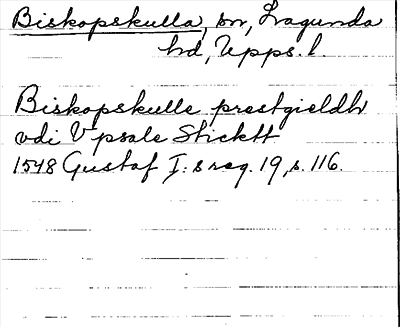 Biskopskulla, sn, Lagunda
hd, Upps. l.
Biskopskulle prestgieldh
vdi Vpsale Sticktt
1548 Gustaf I:s reg. 19, s. 116.